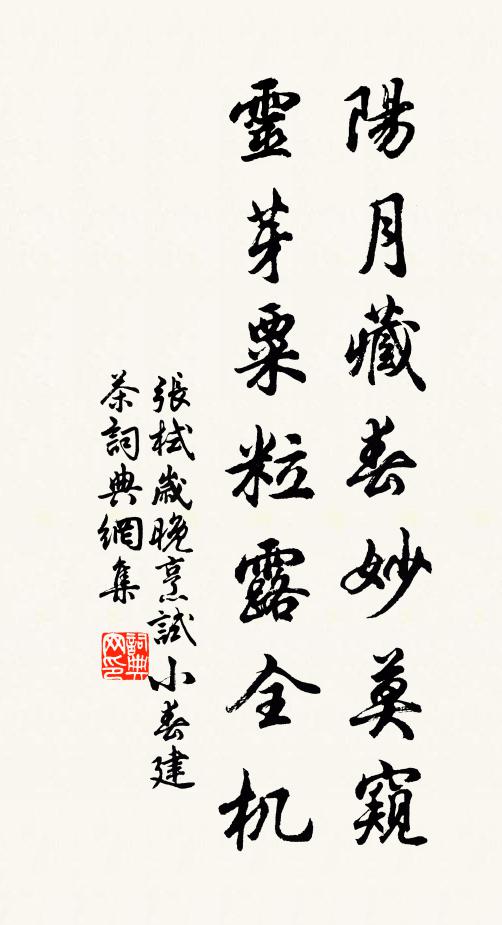 陽月藏春妙莫窺
靈芽粟粒露全机
張栻歲晚烹試小春建
茶詞典網集
詞典
网印